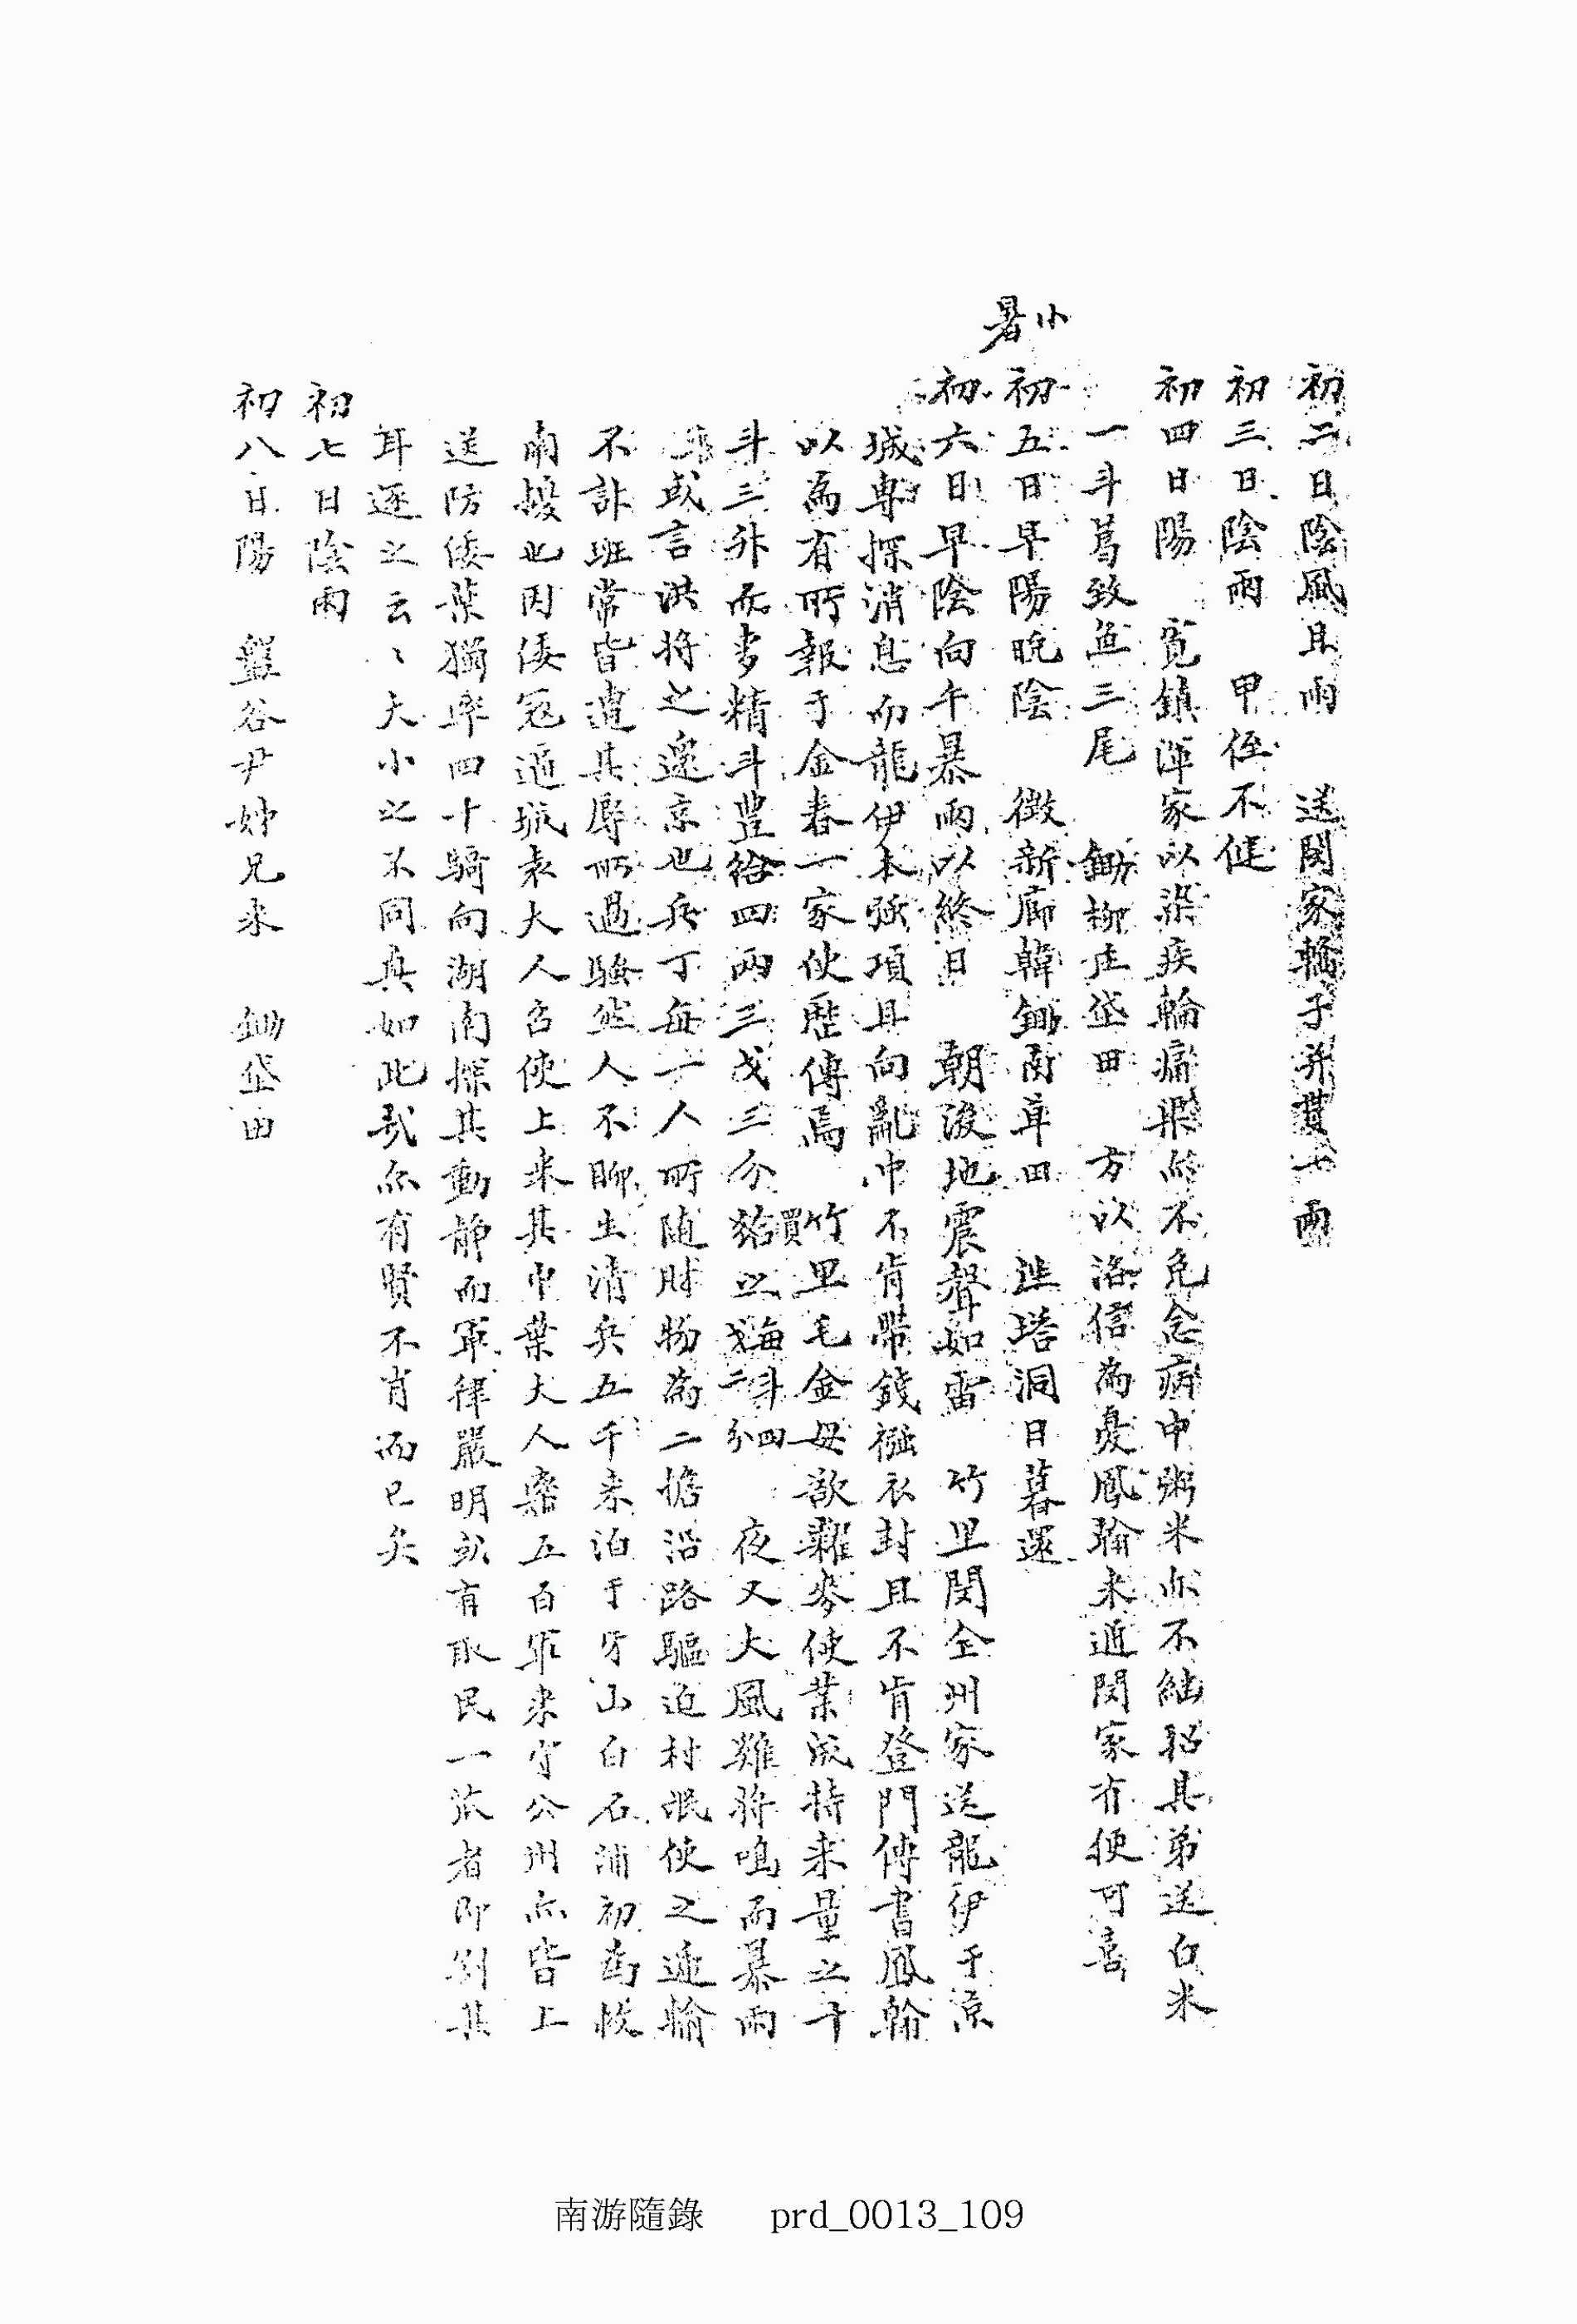 初二日陰風且雨 送閔家轎子并貰一兩
初三日陰雨 甲侄不健
初四日陽 寬鎭渾家以染疾輪痛渠亦不免念病中粥米亦不繼招其弟送白米
一斗葛致魚三尾 鋤柳庄垈田 方以洛信為憂鳳翰來遞閔家有便可喜
小暑
初五日早陽晩陰 徵新廊韓鋤南草田 往塔洞日暮還
初六日早陰向午暴雨以終日 朝後地震聲如雷 竹里閔全州家送龍伊于涼
城專探消息而龍伊本强項且向亂中不肯帶錢襁衣封且不肯登門傳書鳳翰
以為有所報于金春一家使歷傳焉 竹里毛金母欲糶麥使業成特來量之十
斗三升而麥精斗豊給四兩三戈三分 猶買之每斗四戈二分 夜又大風雞將鳴而暴雨
或言洪將之還京也兵丁每一人所随財物為二擔沿路驅迫村氓使之遞輸
不計班常皆遭其辱所過騷然人不聊生清兵五千來泊于牙山白石浦初為恢
南援也因倭冦逼城袁大人召使上來其中葉大人率五百軍來守公州亦皆上
送防倭葉獨率四十騎向湖南探其動靜而軍律嚴明或有取民一菰者即刖其
耳逐之云々大小之不同眞如此哉亦有賢不肖而已矣
初七日陰雨
初八日陽 盤谷尹妙兄來 鋤垈田
南游隨錄 prd_0013_109